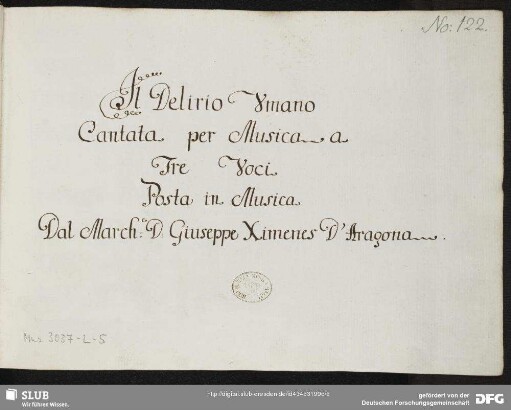 No: 122.
Il Delirio Vmano
Cantata per Musica a
Tre Voci
Posta in Musica
Dal March:e D: Giuseppe Ximenes D'Aragona.
Mus. 3037-L-5
SLUB
Wir führen Wissen.
gefördert von der
Deutschen Forschungsgemeinschaft
DFG